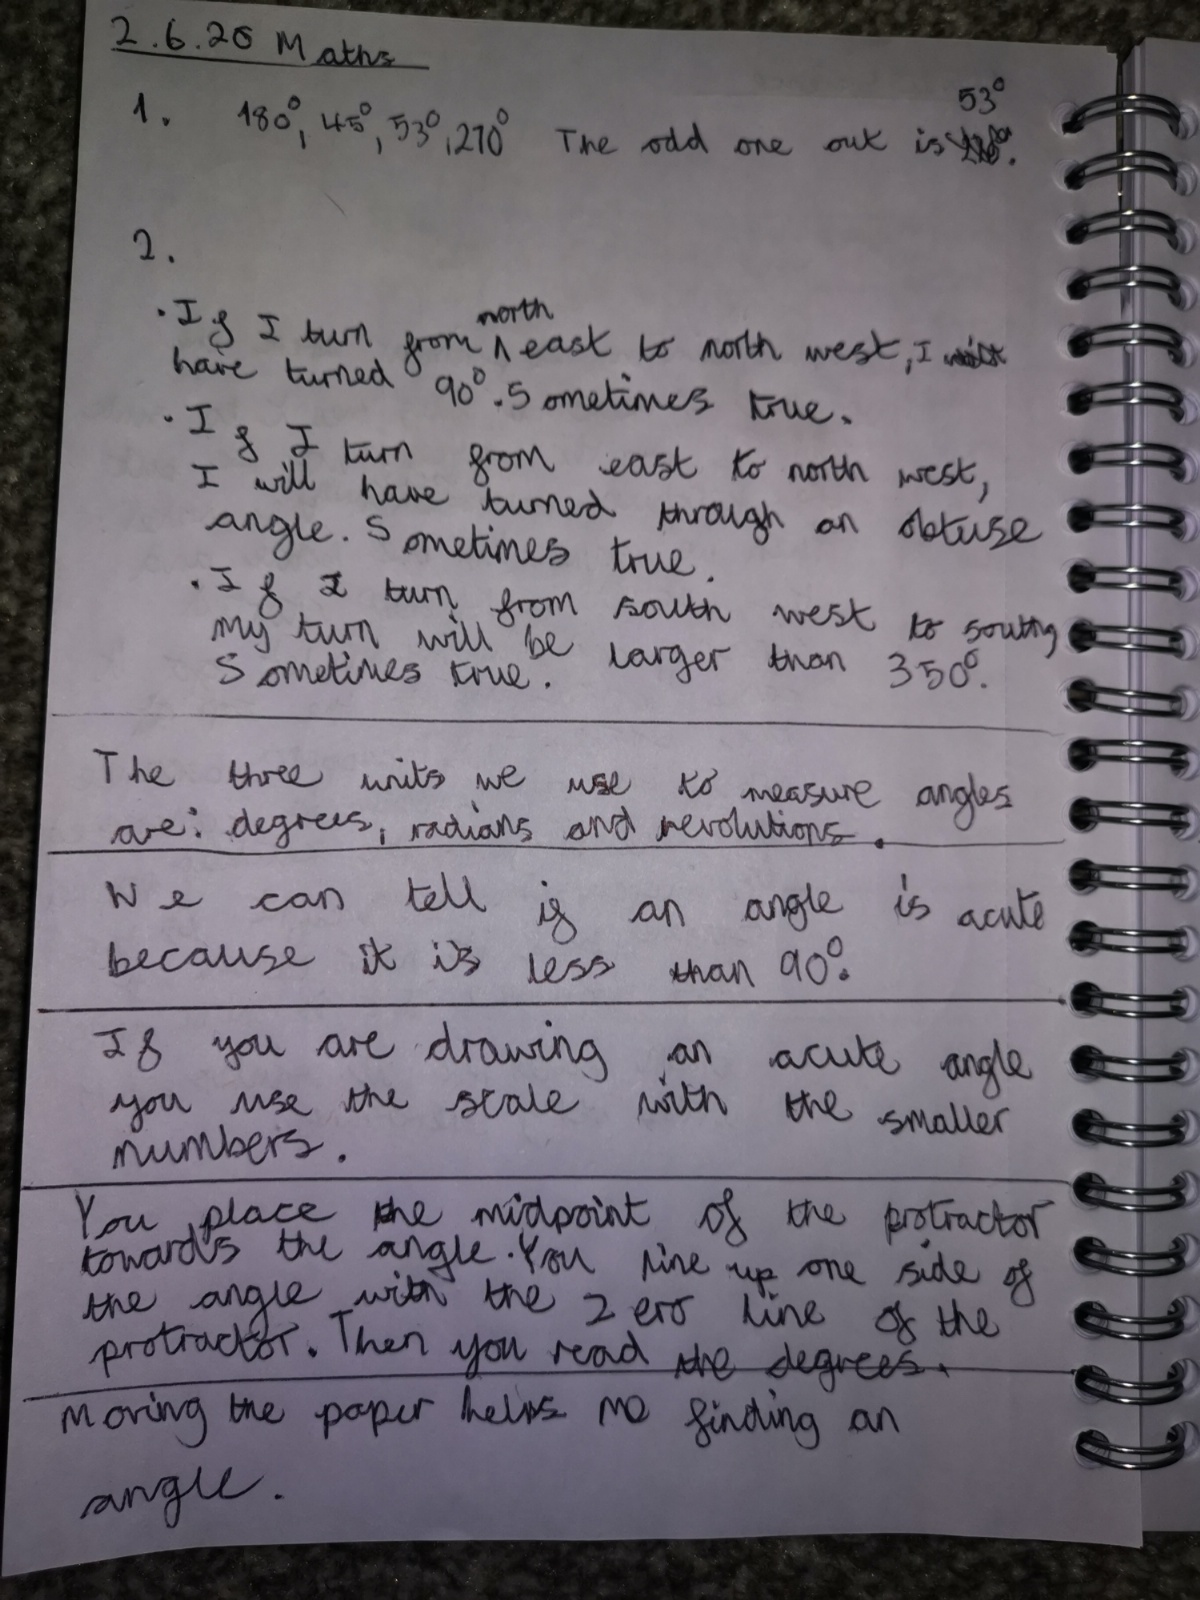 2.6.20 Maths
53°
1. 180°, 45°, 53°, 270° The odd one out is
2.
north
• If I turn from ^ east to north west, I
have turned 90°. Sometimes true.
• If I turn from east to north west,
I will have turned through an obtuse
angle. Sometimes true.
• If I turn from south west to south,
my turn will be larger than 350°.
Sometimes true.
The three units we use to measure angles
are: degrees, radians and revolutions.
We can tell if an angle is acute
because it is less than 90°.
If you are drawing an acute angle
you use the scale with the smaller
numbers.
You place the midpoint of the protractor
towards the angle. You line up one side of
the angle with the zero line of the
protractor. Then you read the degrees.
Moving the paper helps me finding an
angle.